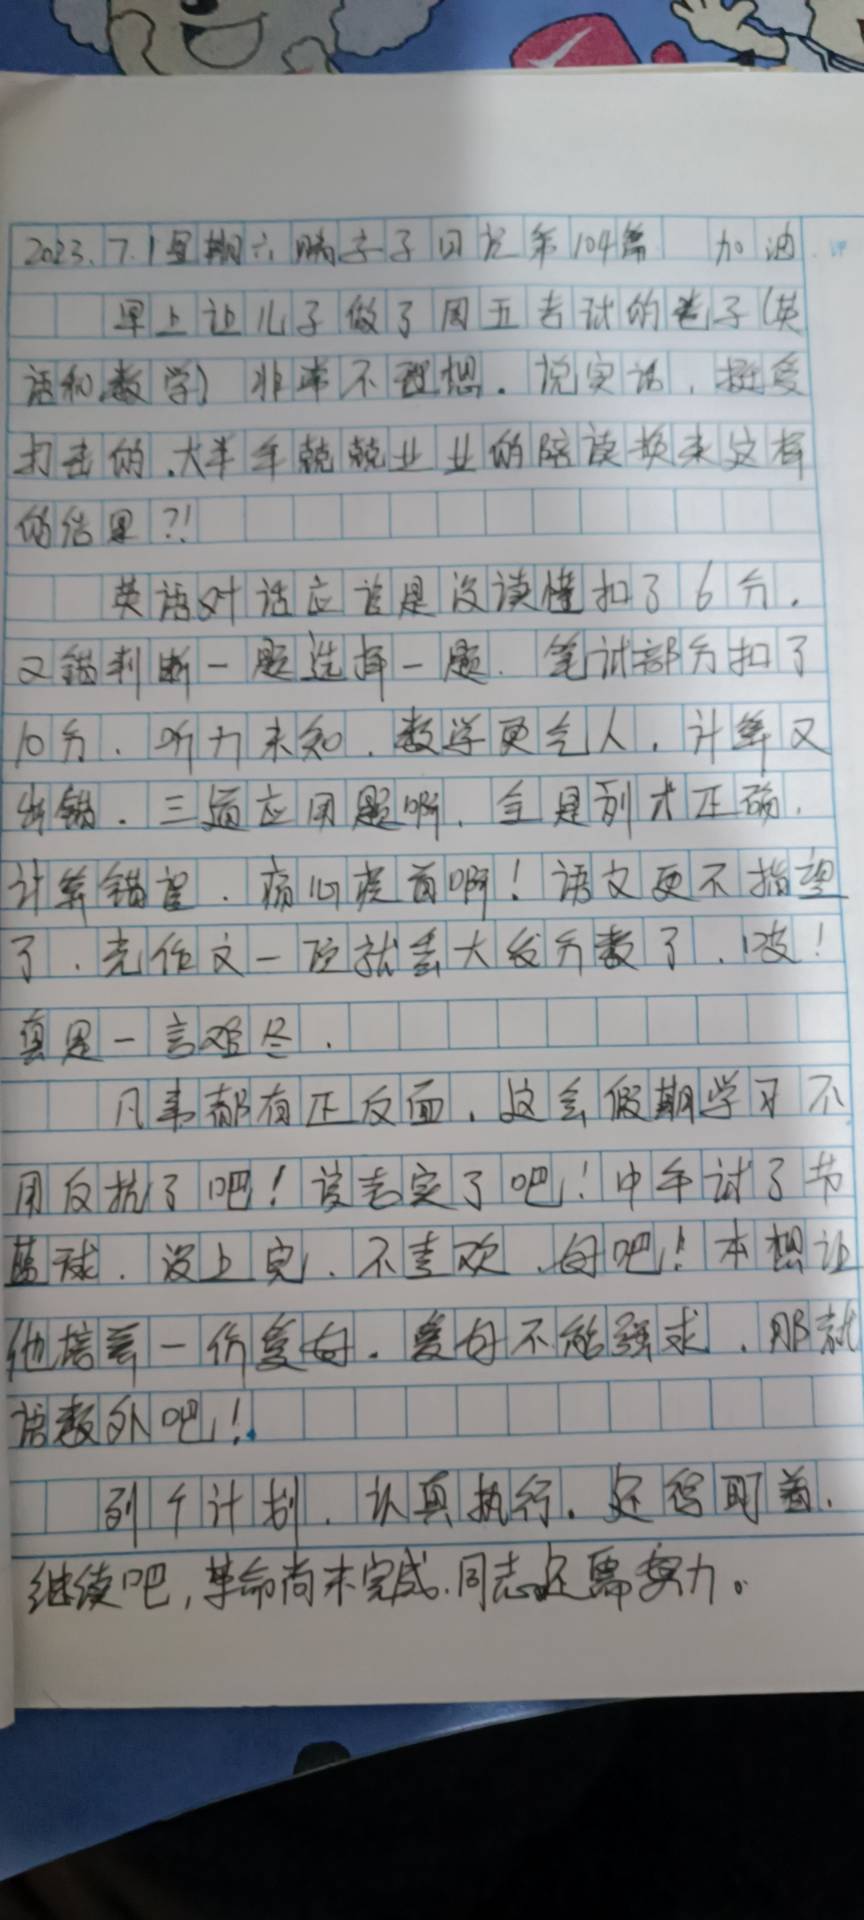 2023.7.1星期六 陪 子日记第104篇 加油
早上让儿子做了周五考试的卷子(英
语和数学)非常不理想.说实话,挺受
打击的.大半年兢兢业业的陪读换来这样
的结果?!
英语对话应该是没读懂扣了6分.
又错判断一题选择一题.笔试部分扣了
10分.听力未知.数学更气人,计算又
出错.三道应用题啊.全是列式正确.
计算错误.痛心疾首啊!语文更不指望
了.光作文一项就丢大 分数了.哎!
真是一言难尽.
凡事都有正反面.这会假期学习不
用反抗了吧!该老实了吧!中午试了节
篮球.没上完.不喜欢.好吧!本想让
他培养一份爱好.爱好不能强求.那就
语数外吧!
列个计划.认真执行.还得盯着.
继续吧,革命尚未完成.同志还需努力。